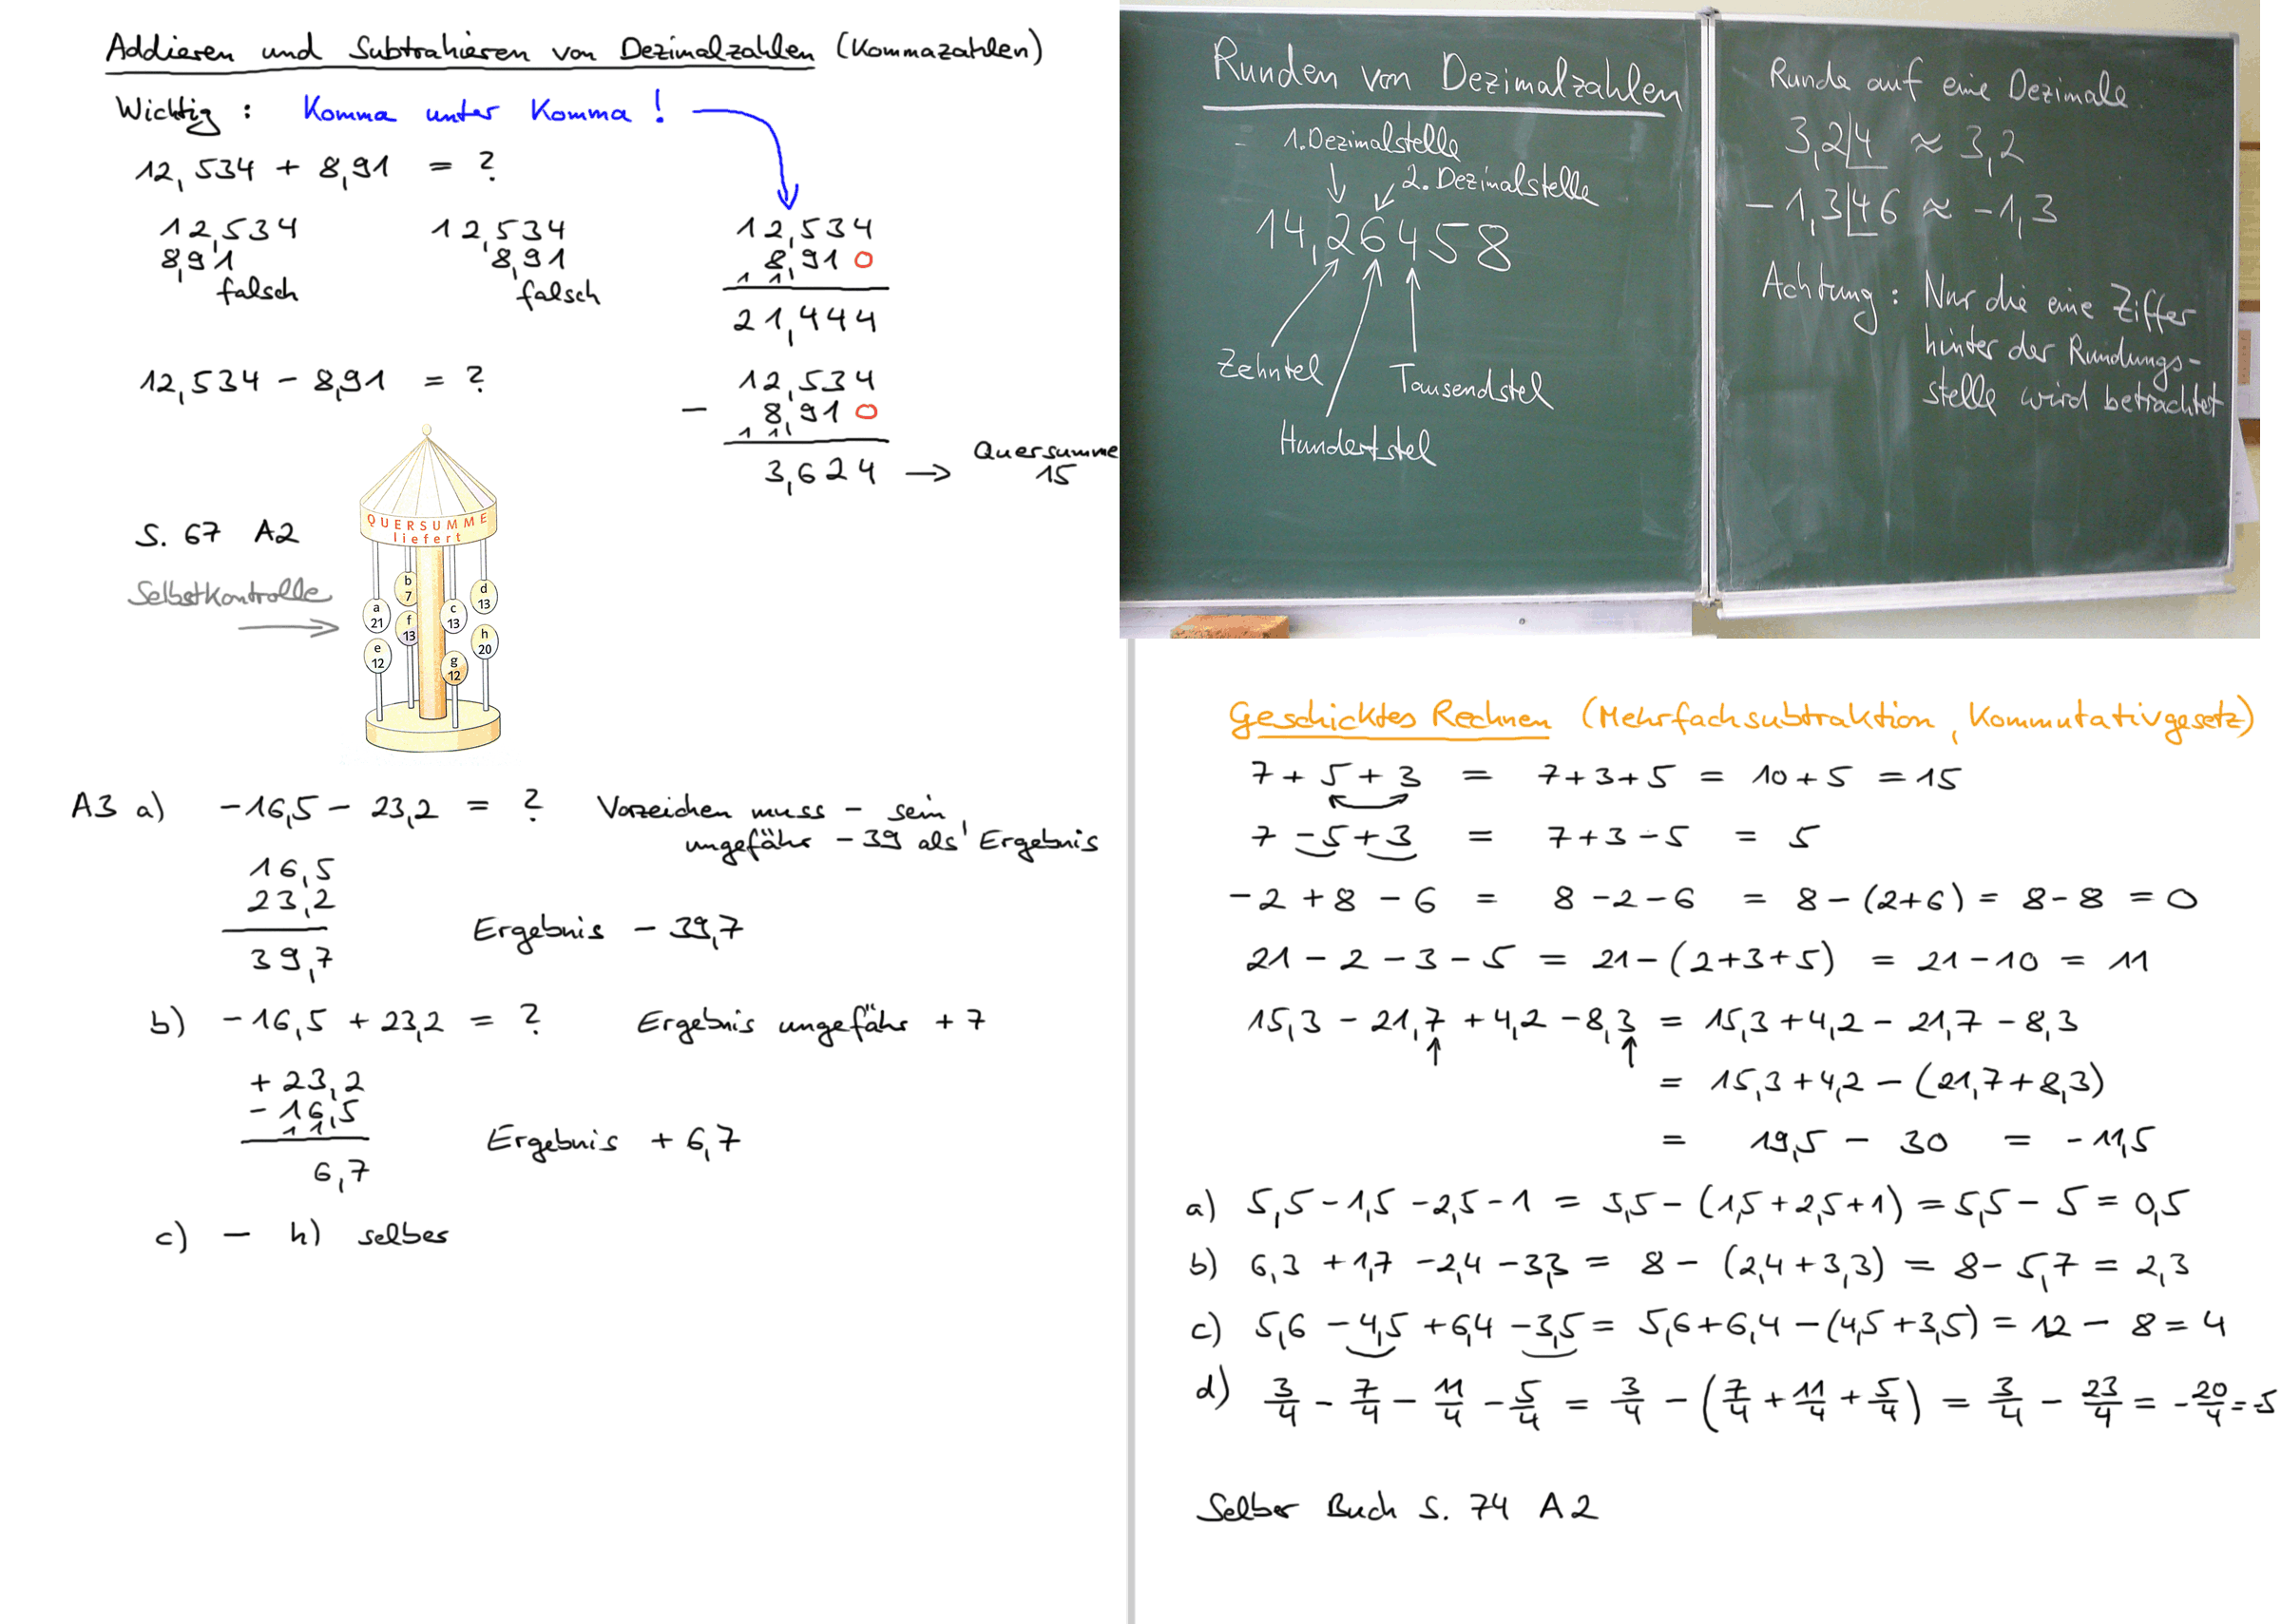 Addieren und Subtrahieren von Dezimalzahlen (Kommazahlen)
Wichtig : Komma unter Komma !
12,534 + 8,91 = ?
12,534
8,91
falsch
12,534
8,91
falsch
12,534
8,910
1 1
21,444
12,534 - 8,91 = ?
12,534
- 8,910
1 1 1
3,624 → Quersumme
15
S. 67 A2
Selbstkontrolle
QUERSUMME
liefert
a
21
b
7
c
13
d
13
e
12
f
13
g
12
h
20
A3 a) -16,5 - 23,2 = ? Vorzeichen muss - sein,
ungefähr -39 als Ergebnis
16,5
23,2
39,7
Ergebnis - 39,7
b) -16,5 + 23,2 = ? Ergebnis ungefähr + 7
+ 23,2
- 16,5
1 1
6,7
Ergebnis + 6,7
c) - h) selber
Runden von Dezimalzahlen
- 1. Dezimalstelle
2. Dezimalstelle
14,26458
Zehntel
Tausendstel
Hundertstel
Runde auf eine Dezimale.
3,2|4 ≈ 3,2
-1,3|46 ≈ -1,3
Achtung : Nur die eine Ziffer
hinter der Rundungs-
stelle wird betrachtet
Geschicktes Rechnen (Mehrfachsubtraktion, Kommutativgesetz)
7 + 5 + 3 = 7+3+5 = 10+5 = 15
7 - 5 + 3 = 7+3-5 = 5
-2 + 8 - 6 = 8 - 2 - 6 = 8 - (2+6) = 8 - 8 = 0
21 - 2 - 3 - 5 = 21 - (2+3+5) = 21 - 10 = 11
15,3 - 21,7 + 4,2 - 8,3 = 15,3 + 4,2 - 21,7 - 8,3
= 15,3 + 4,2 - (21,7 + 8,3)
= 19,5 - 30 = -11,5
a) 5,5 - 1,5 - 2,5 - 1 = 5,5 - (1,5 + 2,5 + 1) = 5,5 - 5 = 0,5
b) 6,3 + 1,7 - 2,4 - 3,3 = 8 - (2,4 + 3,3) = 8 - 5,7 = 2,3
c) 5,6 - 4,5 + 6,4 - 3,5 = 5,6 + 6,4 - (4,5 + 3,5) = 12 - 8 = 4
d) 3/4 - 7/4 - 11/4 - 5/4 = 3/4 - (7/4 + 11/4 + 5/4) = 3/4 - 23/4 = -20/4 = -5
Selber Buch S. 74 A2